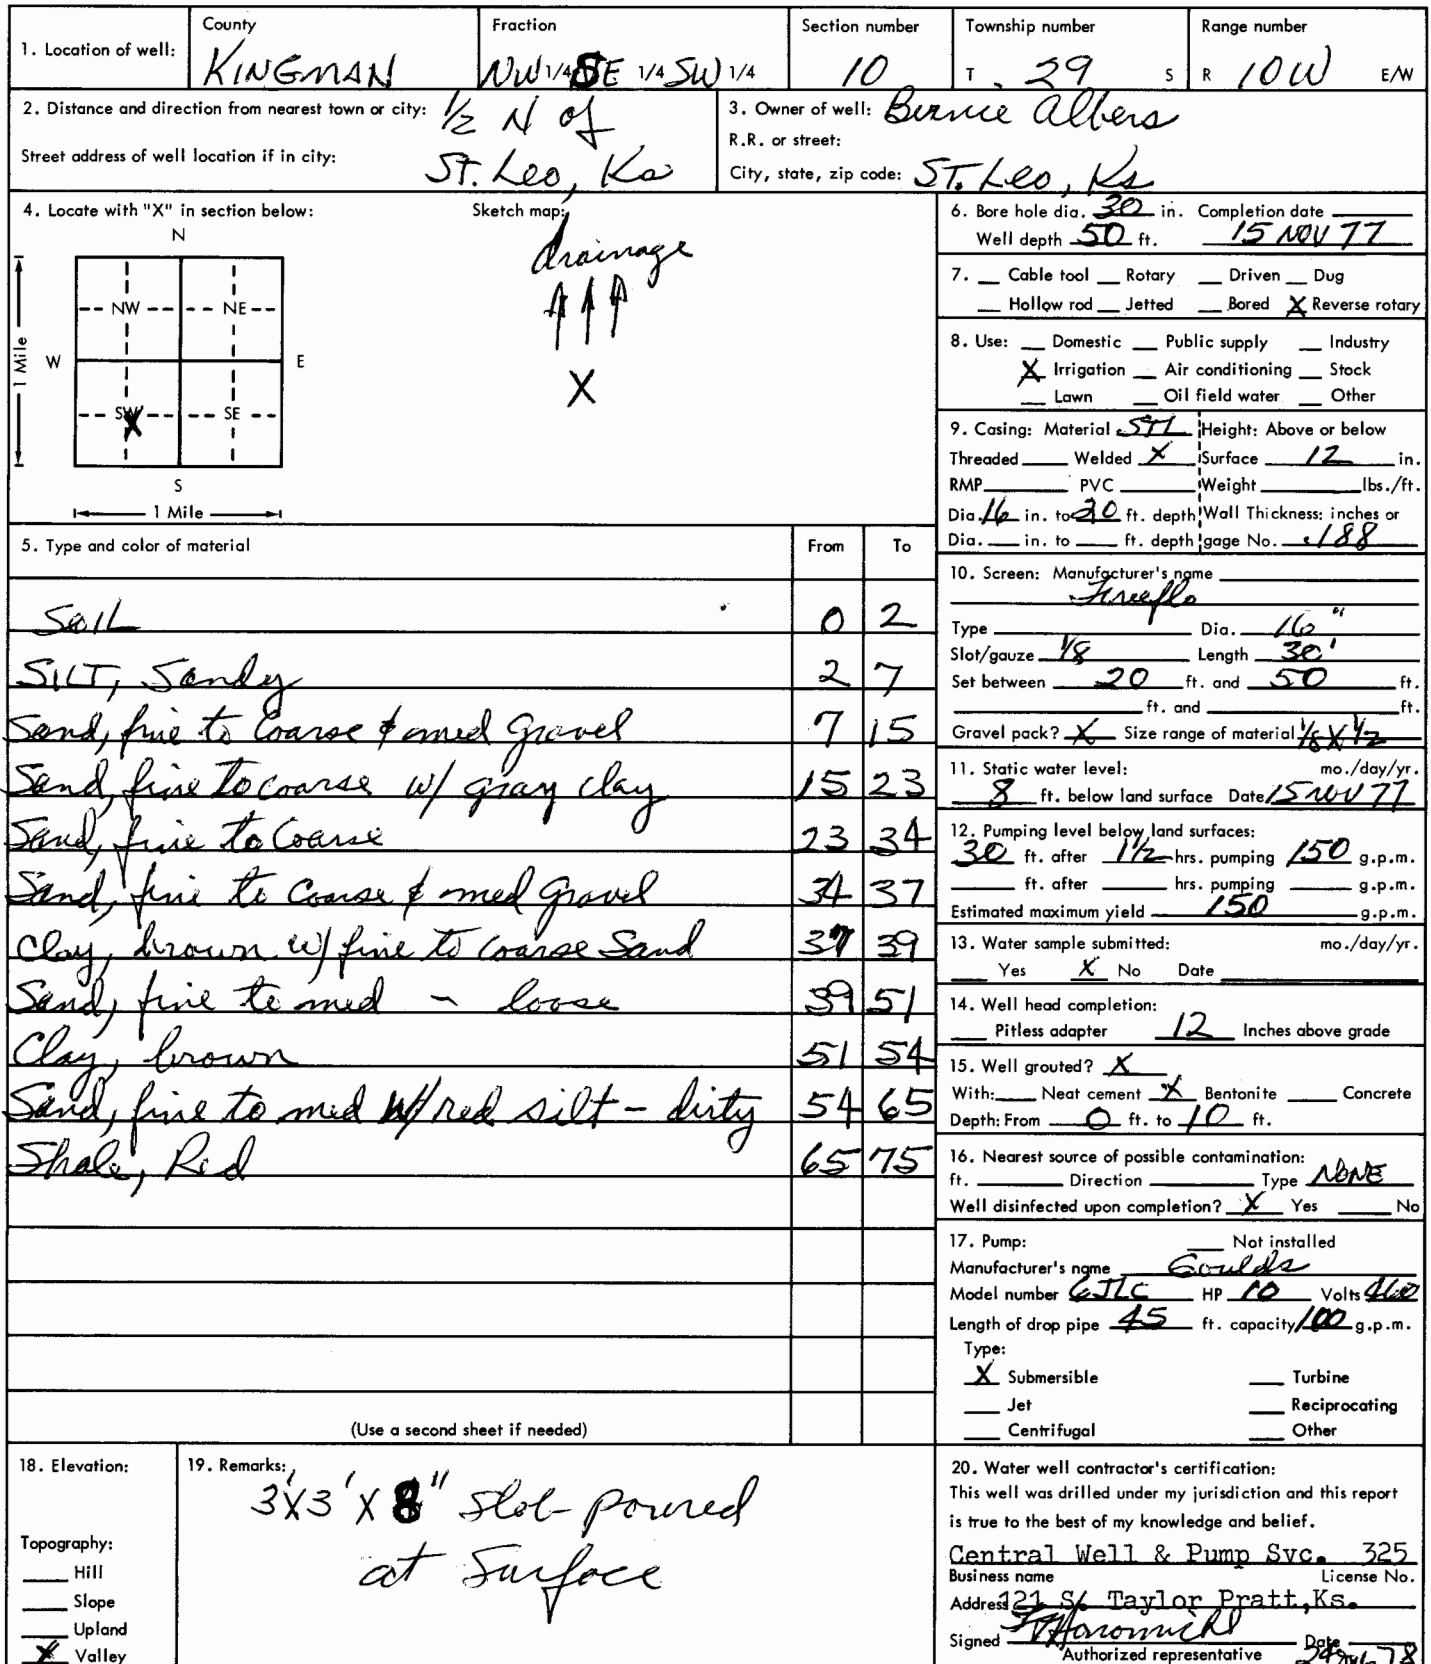 1. Location of well: County KINGMAN Fraction NW 1/4 SE 1/4 SW 1/4 Section number 10 Township number T 29 S Range number R 10W E/W
2. Distance and direction from nearest town or city: 1/2 N of
Street address of well location if in city: ST. Leo, Ks
3. Owner of well: Bernie Albers
R.R. or street:
City, state, zip code: ST. Leo, Ks
4. Locate with "X" in section below:
N
NW NE
W E
1 Mile
SW X SE
S
1 Mile
Sketch map:
drainage
X
5. Type and color of material From To
Soil 0 2
SILT, Sandy 2 7
Sand, fine to coarse & med Gravel 7 15
Sand, fine to coarse w/ gray clay 15 23
Sand, fine to Coarse 23 34
Sand, fine to coarse & med gravel 34 37
Clay, brown w/ fine to coarse Sand 37 39
Sand, fine to med - loose 39 51
Clay, brown 51 54
Sand, fine to med w/ red silt - dirty 54 65
Shale, Red 65 75
(Use a second sheet if needed)
6. Bore hole dia. 30 in. Completion date
Well depth 50 ft. 15 NOV 77
7. Cable tool Rotary Driven Dug
Hollow rod Jetted Bored X Reverse rotary
8. Use: Domestic Public supply Industry
X Irrigation Air conditioning Stock
Lawn Oil field water Other
9. Casing: Material STL Height: Above or below
Threaded Welded X Surface 12 in.
RMP PVC Weight lbs./ft.
Dia. 16 in. to 20 ft. depth Wall Thickness: inches or
Dia. in. to ft. depth gage No. .188
10. Screen: Manufacturer's name
Freeflo
Type Dia. 16"
Slot/gauze 1/8 Length 30'
Set between 20 ft. and 50 ft.
ft. and ft.
Gravel pack? X Size range of material 1/8 X 1/2
11. Static water level: mo./day/yr.
8 ft. below land surface Date 15 NOV 77
12. Pumping level below land surfaces:
30 ft. after 1 1/2 hrs. pumping 150 g.p.m.
ft. after hrs. pumping g.p.m.
Estimated maximum yield 150 g.p.m.
13. Water sample submitted: mo./day/yr.
Yes X No Date
14. Well head completion:
Pitless adapter 12 Inches above grade
15. Well grouted? X
With: Neat cement X Bentonite Concrete
Depth: From 0 ft. to 10 ft.
16. Nearest source of possible contamination:
ft. Direction Type NONE
Well disinfected upon completion? X Yes No
17. Pump: Not installed
Manufacturer's name Goulds
Model number 6JLC HP 10 Volts 460
Length of drop pipe 45 ft. capacity 100 g.p.m.
Type:
X Submersible Turbine
Jet Reciprocating
Centrifugal Other
18. Elevation:
Topography:
Hill
Slope
Upland
X Valley
19. Remarks:
3'X3'X8" Slab poured
at Surface
20. Water well contractor's certification:
This well was drilled under my jurisdiction and this report
is true to the best of my knowledge and belief.
Central Well & Pump Svc. 325
Business name License No.
Address 121 S. Taylor Pratt,Ks.
Signed Date
Authorized representative